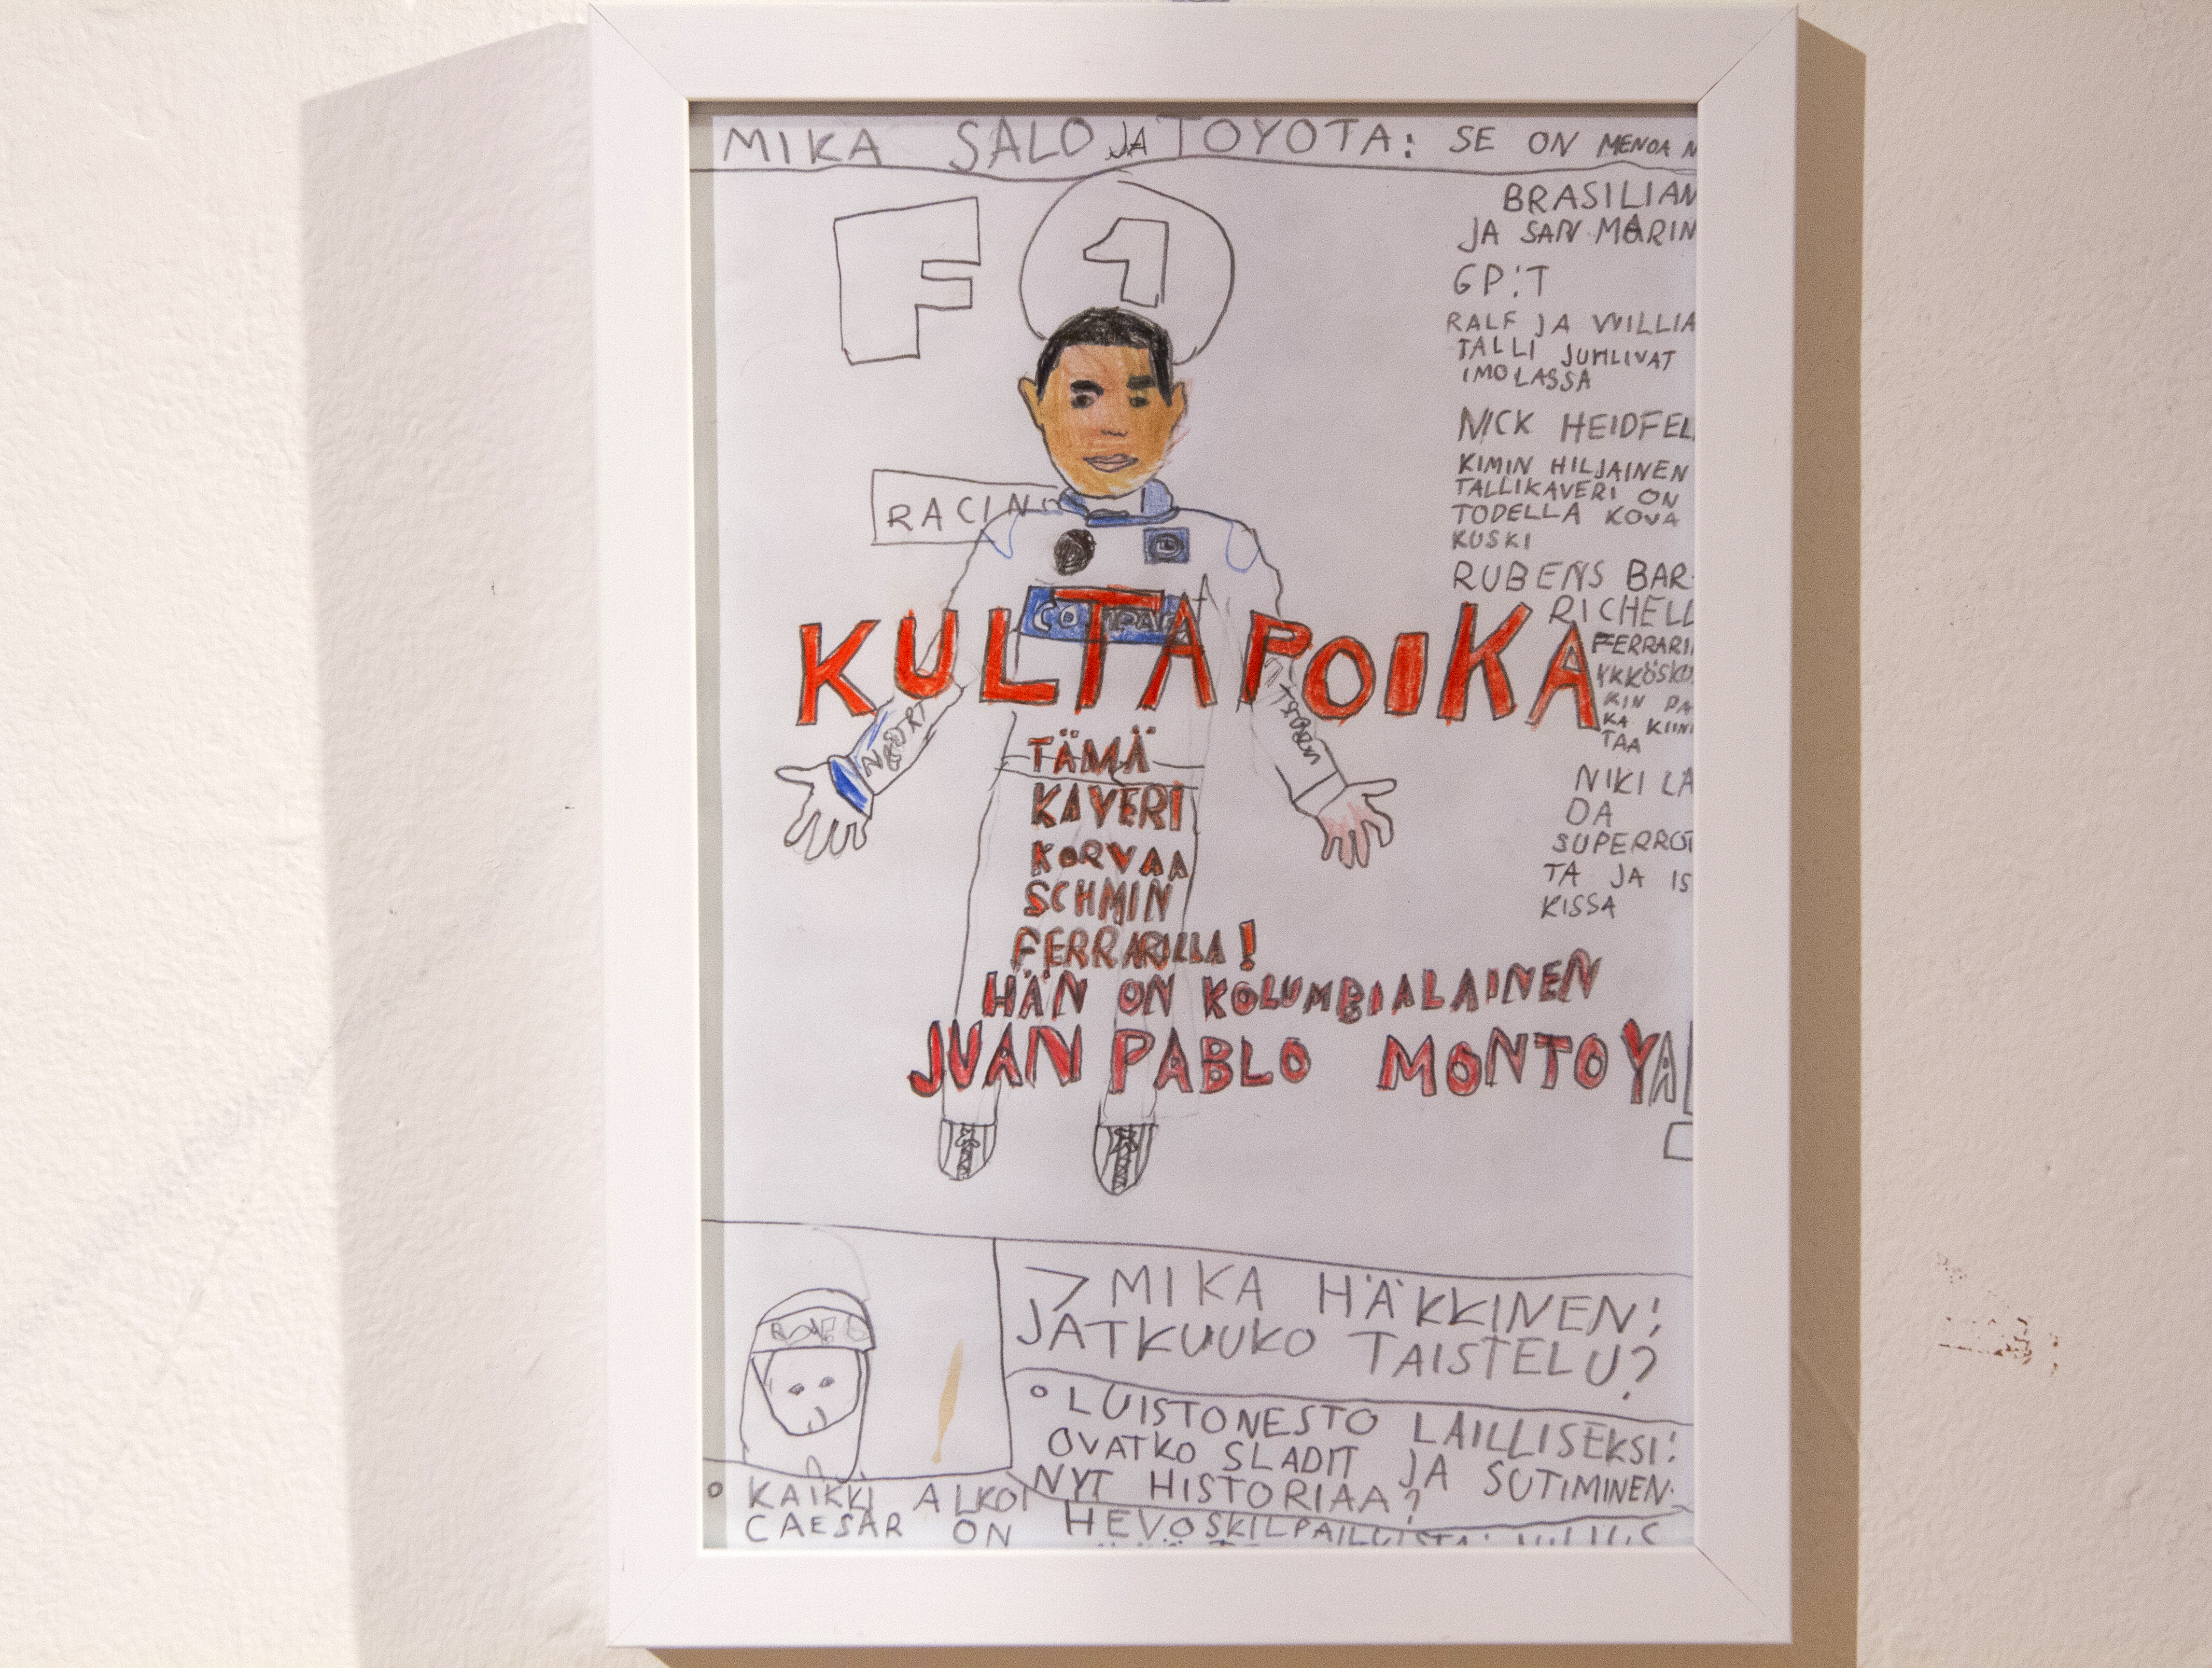 MIKA SALO JA TOYOTA: SE ON MENOA
F1
RACING
BRASILIAN
JA SAN MARIN
GP:T
RALF JA WILLIA
TALLI JUHLIVAT
IMOLASSA
NICK HEIDFEL
KIMIN HILJAINEN
TALLIKAVERI ON
TODELLA KOVA
KUSKI
RUBENS BAR-
RICHELL
FERRARI
YKKÖSKU
KIN PA
KA KIIN
TAA
NIKI LA
DA
SUPERROT
TA JA IS
KISSA
COMPAQ
KULTAPOIKA
TÄMÄ
KAVERI
KORVAA
SCHMIN
FERRARILLA!
HÄN ON KOLUMBIALAINEN
JUAN PABLO MONTOYA
>MIKA HÄKKINEN:
JATKUUKO TAISTELU?
• LUISTONESTO LAILLISEKSI:
OVATKO SLADIT JA SUTIMINEN
NYT HISTORIAA?
• KAIKKI ALKOI
HEVOSKILPAILUISTA:
CAESAR ON